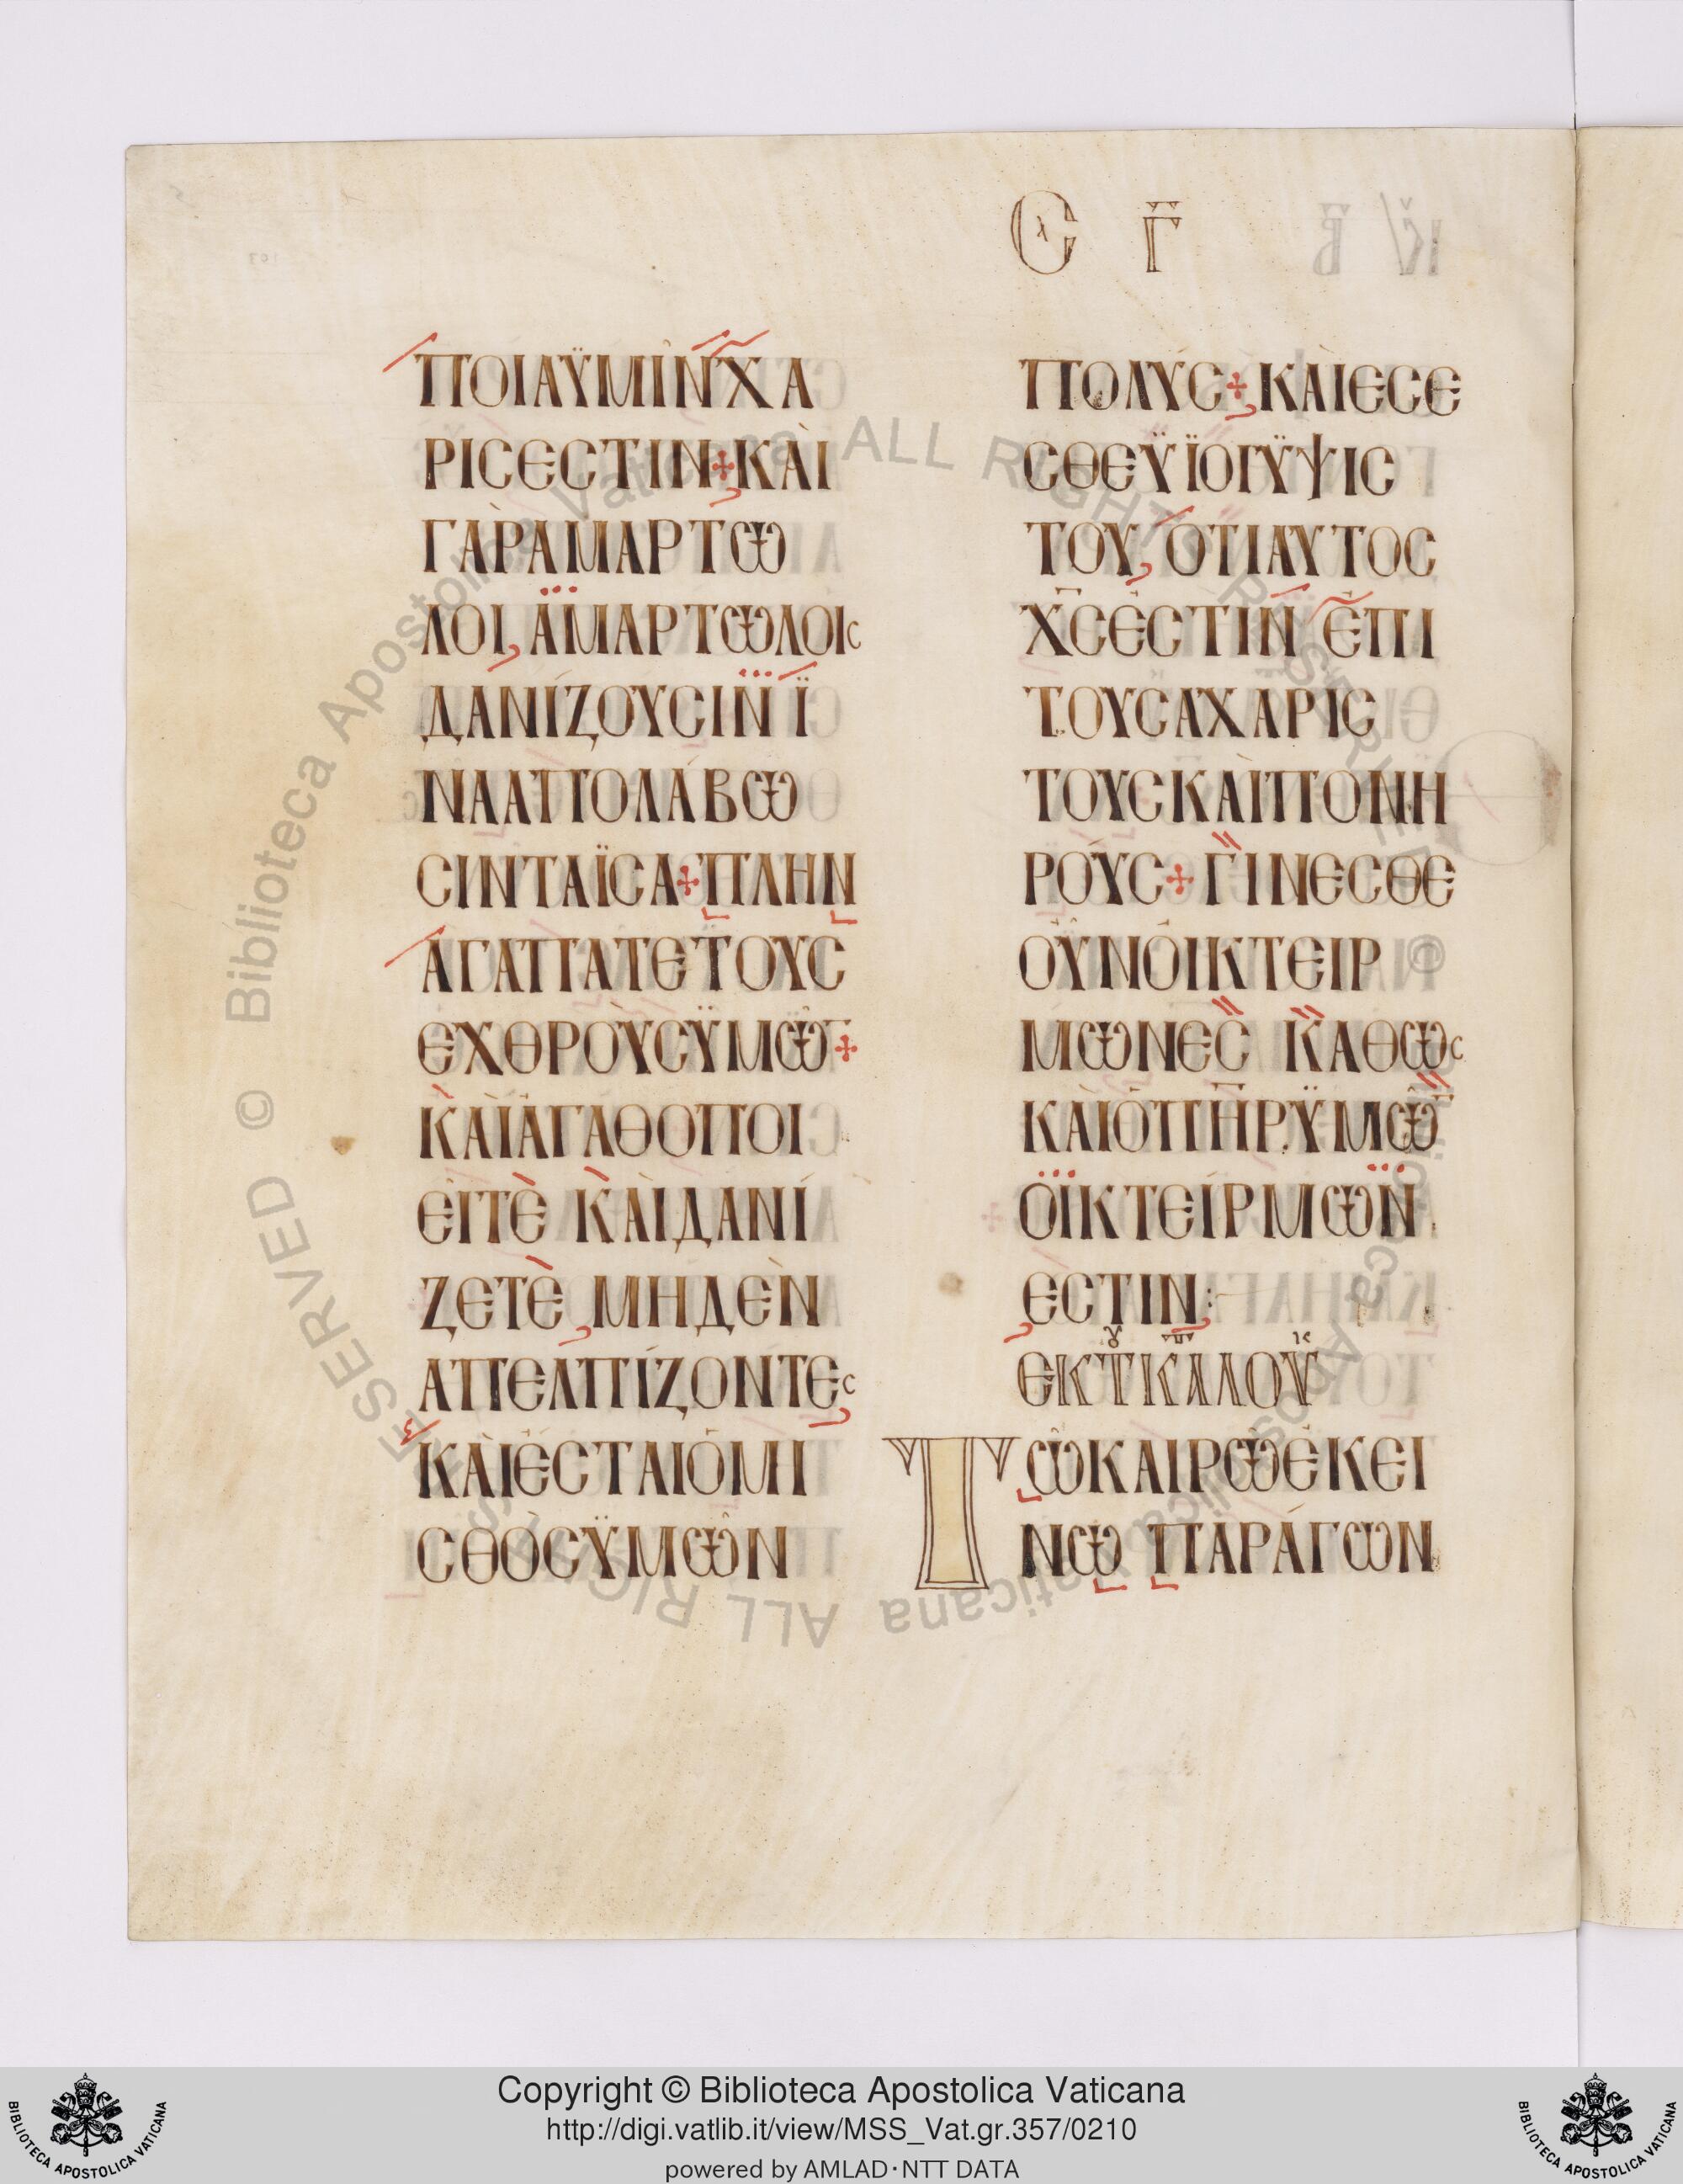 Ϲ Γ̅
ΠΟΙΑΫΜΙΝΧΑ
ΡΙϹΕϹΤΙΝ⁘ΚΑΙ
ΓΑΡΑΜΑΡΤΩ
ΛΟΙ,ΑΜΑΡΤΩΛΟΙϹ
ΔΑΝΙΖΟΥϹΙΝ Ϊ
ΝΑΑΠΟΛΑΒΩ
ϹΙΝΤΑΪϹΑ⁘ΠΛΗΝ
ΑΓΑΠΑΤΕΤΟΥϹ
ΕΧΘΡΟΥϹΫΜΩ̅⁘
ΚΑΙΑΓΑΘΟΠΟΙ
ΕΙΤΕ ΚΑΙΔΑΝΙ
ΖΕΤΕ ΜΗΔΕΝ
ΑΠΕΛΠΙΖΟΝΤΕϹ
ΚΑΙΕϹΤΑΙΟΜΙ
ϹΘΟϹΫΜΩΝ
ΠΟΛΥϹ⁘ΚΑΙΕϹΕ
ϹΘΕΫΪΟΙΫΨΙϹ
ΤΟΥ, ΟΤΙΑΥΤΟϹ
Χ̅ϹΕϹΤΙΝ ΕΠΙ
ΤΟΥϹΑΧΑΡΙϹ
ΤΟΥϹΚΑΙΠΟΝΗ
ΡΟΥϹ⁘ ΓΙΝΕϹΘΕ
ΟΥΝΟΙΚΤΕΙΡ
ΜΩΝΕϹ ΚΑΘΩϹ
ΚΑΙΟΠΗ̅ΡΫΜΩ̅
ΟΪΚΤΕΙΡΜΩΝ
ΕϹΤΙΝ:
ΕΚΤΚΑΛΟΥ
ΤΩΚΑΙΡΩΕΚΕΙ
ΝΩ ΠΑΡΑΓΩΝ
© Biblioteca Apostolica Vaticana ALL RIGHTS RESERVED
Copyright © Biblioteca Apostolica Vaticana
http://digi.vatlib.it/view/MSS_Vat.gr.357/0210
powered by AMLAD・NTT DATA
BIBLIOTECA APOSTOLICA VATICANA
BIBLIOTECA APOSTOLICA VATICANA